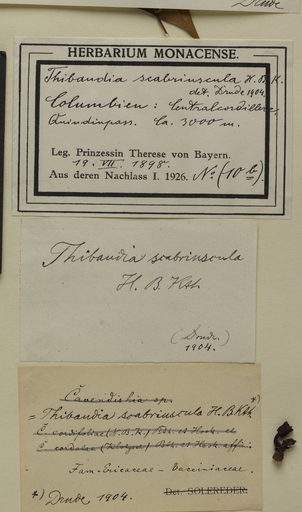 Drude
HERBARIUM MONACENSE.
Thibaudia scabriuscula H. B. K.
det. Drude 1904.
Columbien: Centralcordillere,
Quindiupass. Ca. 3000 m.
Leg. Prinzessin Therese von Bayern.
19. VII. 1898.
Aus deren Nachlass I. 1926. No (10 b).
Thibaudia scabriuscula
H. B. Kth.
(Drude.)
1904.
Cavendishia sp. *)
= Thibaudia scabriuscula H. B. Kth.
C. cordifoliae (H. B. K.) Bth. et Hook. et
C. cordatae (Klotzsch) Bth. et Hook. affin.
Fam. Ericaceae - Vaccinieae.
*) Drude 1904.
Det. SOLEREDER.